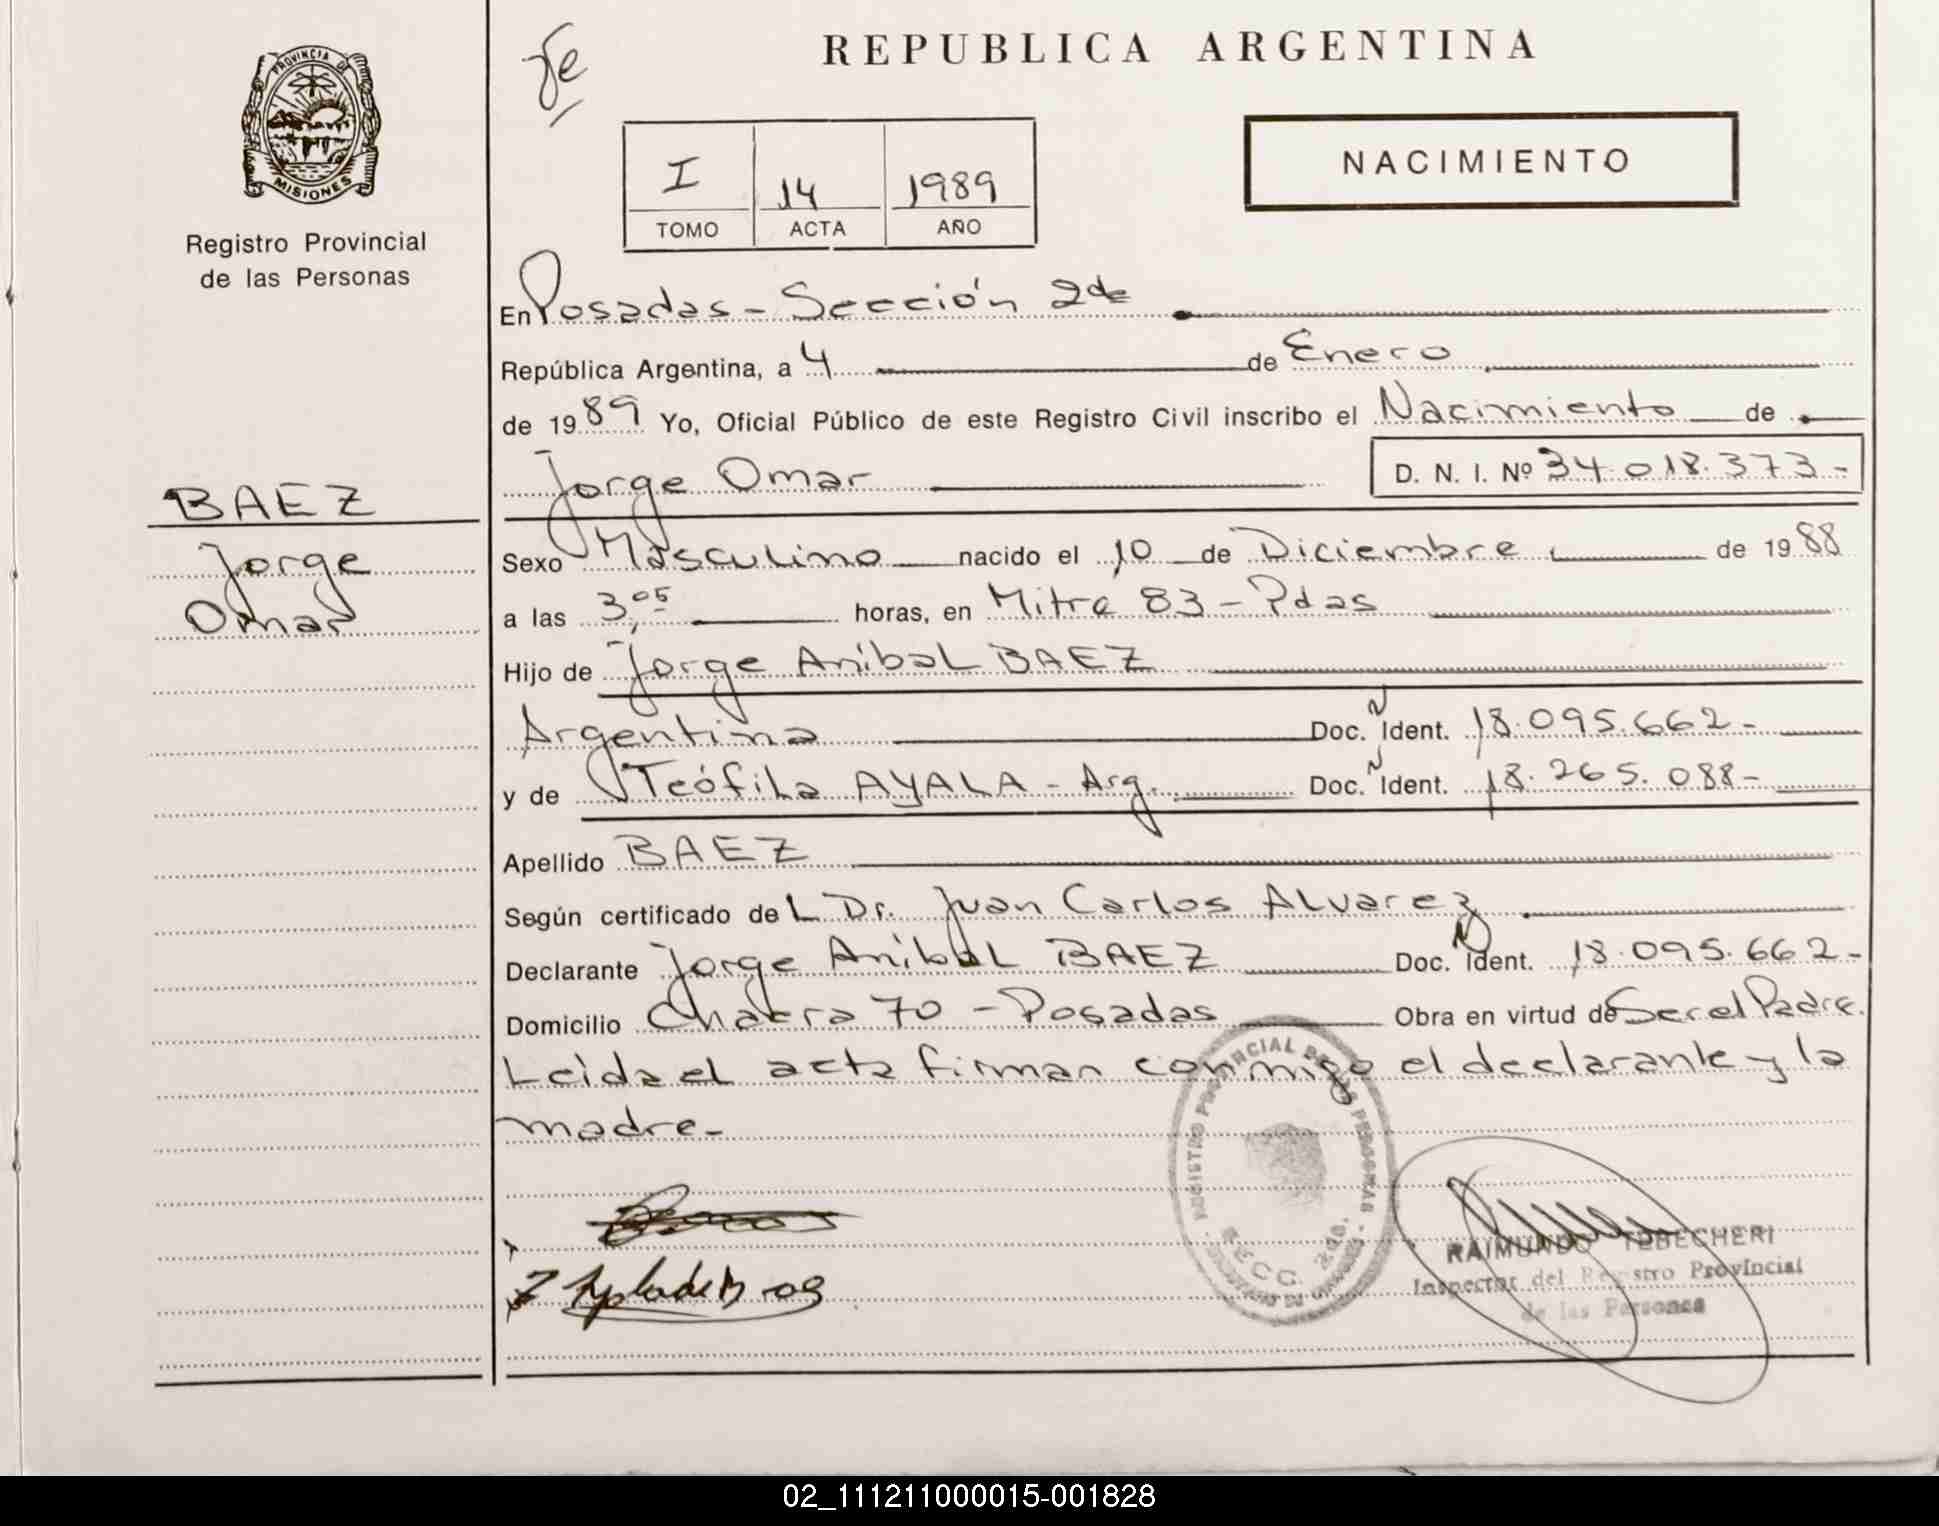 PROVINCIA DE
MISIONES
Registro Provincial
de las Personas
BAEZ
Jorge
Omar
REPUBLICA ARGENTINA
I 14 1989
TOMO ACTA AÑO
NACIMIENTO
En Posadas - Sección 2da
República Argentina, a 4 de Enero
de 1989 Yo, Oficial Público de este Registro Civil inscribo el Nacimiento de
Jorge Omar D. N. I. Nº 34.018.373-
Sexo Masculino nacido el 10 de Diciembre de 1988
a las 3,05 horas, en Mitre 83 - Pdas
Hijo de Jorge Aníbal BAEZ
Argentina Doc. Ident. 18.095.662-
y de Teófila AYALA - Arg. Doc. Ident. 18.265.088-
Apellido BAEZ
Según certificado del Dr. Juan Carlos Alvarez
Declarante Jorge Aníbal BAEZ Doc. Ident. 18.095.662-
Domicilio Chacra 70 - Posadas Obra en virtud de Ser el Padre.
Leída el acta firman conmigo el declarante y la
madre-
REGISTRO PROVINCIAL DE LAS PERSONAS
SECC. 2da.
RAIMUNDO TEBECHERI
Inspector del Registro Provincial
de las Personas
02_111211000015-001828